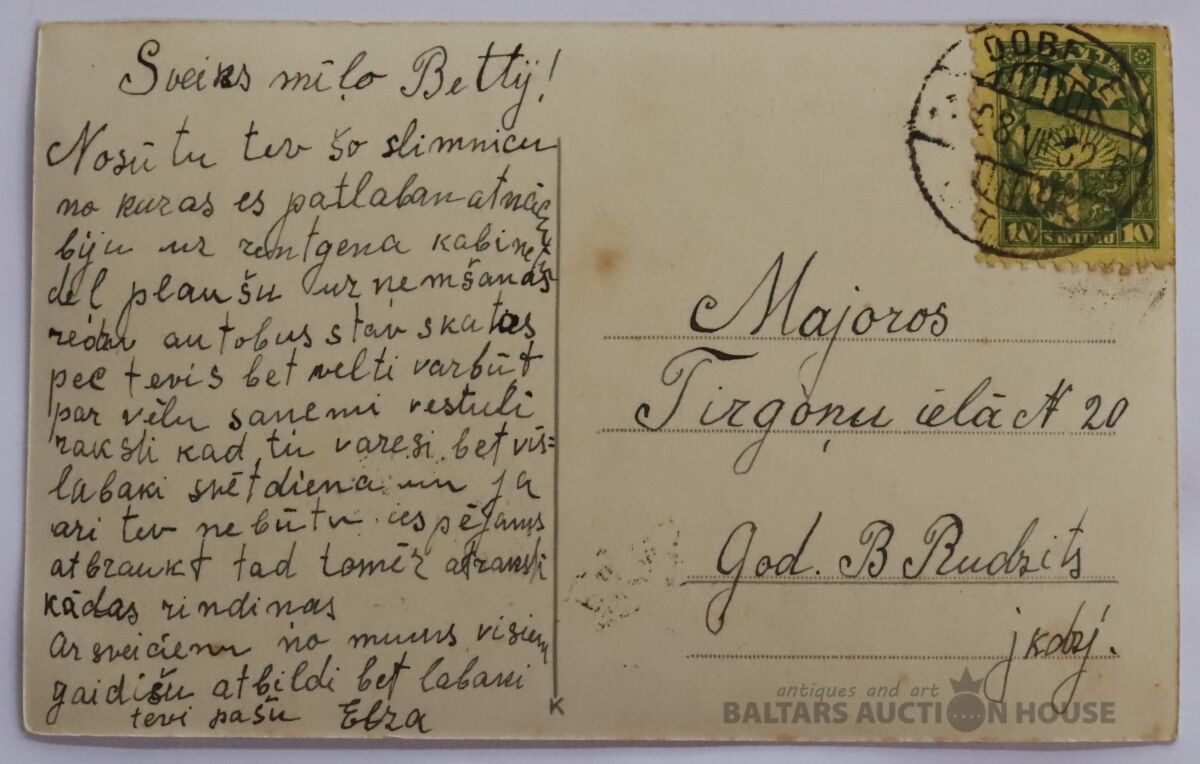 Sveiks mīļo Bettÿ!
Nosūtu tev šo slimnicu
no kuras es patlaban atnācu
biju uz rentgena kabinetu
dēļ plaušu uzņemšanas
autobus stāv skatos
pec tevis bet velti varbūt
par vēlu saņemi vestuli
raksti kad tu varesi bet vis-
labaki svētdiena un ja
ari tev nebūtu iespējams
atbraukt tad tomēr atraksti
kādas rindinas
Ar sveicienu no mums visiem
gaidišu atbildi bet labaki
tevi pašu Elza
K
DOBELE
8 VII
10 SANTIMU 10
Majoros
Tirgoņu ielā N 20
God. B Rudzits
jkdzj.
antiques and art
BALTARS AUCTION HOUSE